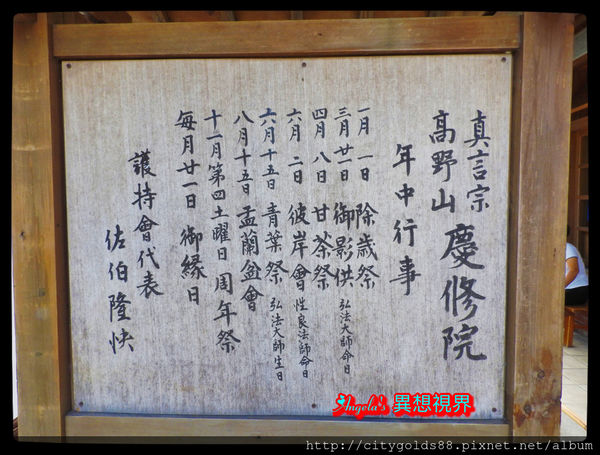 真言宗
高野山 慶修院
年中行事
一月一日 除歳祭
三月廿一日 御影供 弘法大師命日
四月八日 甘茶祭
六月二日 彼岸會 性良法師命日
六月十五日 青葉祭 弘法大師生日
八月十五日 盂蘭盆會
十一月第四土曜日 周年祭
每月廿一日 御縁日
護持會代表
佐伯隆快
Angola's 異想視界
http://citygolds88.pixnet.net/album